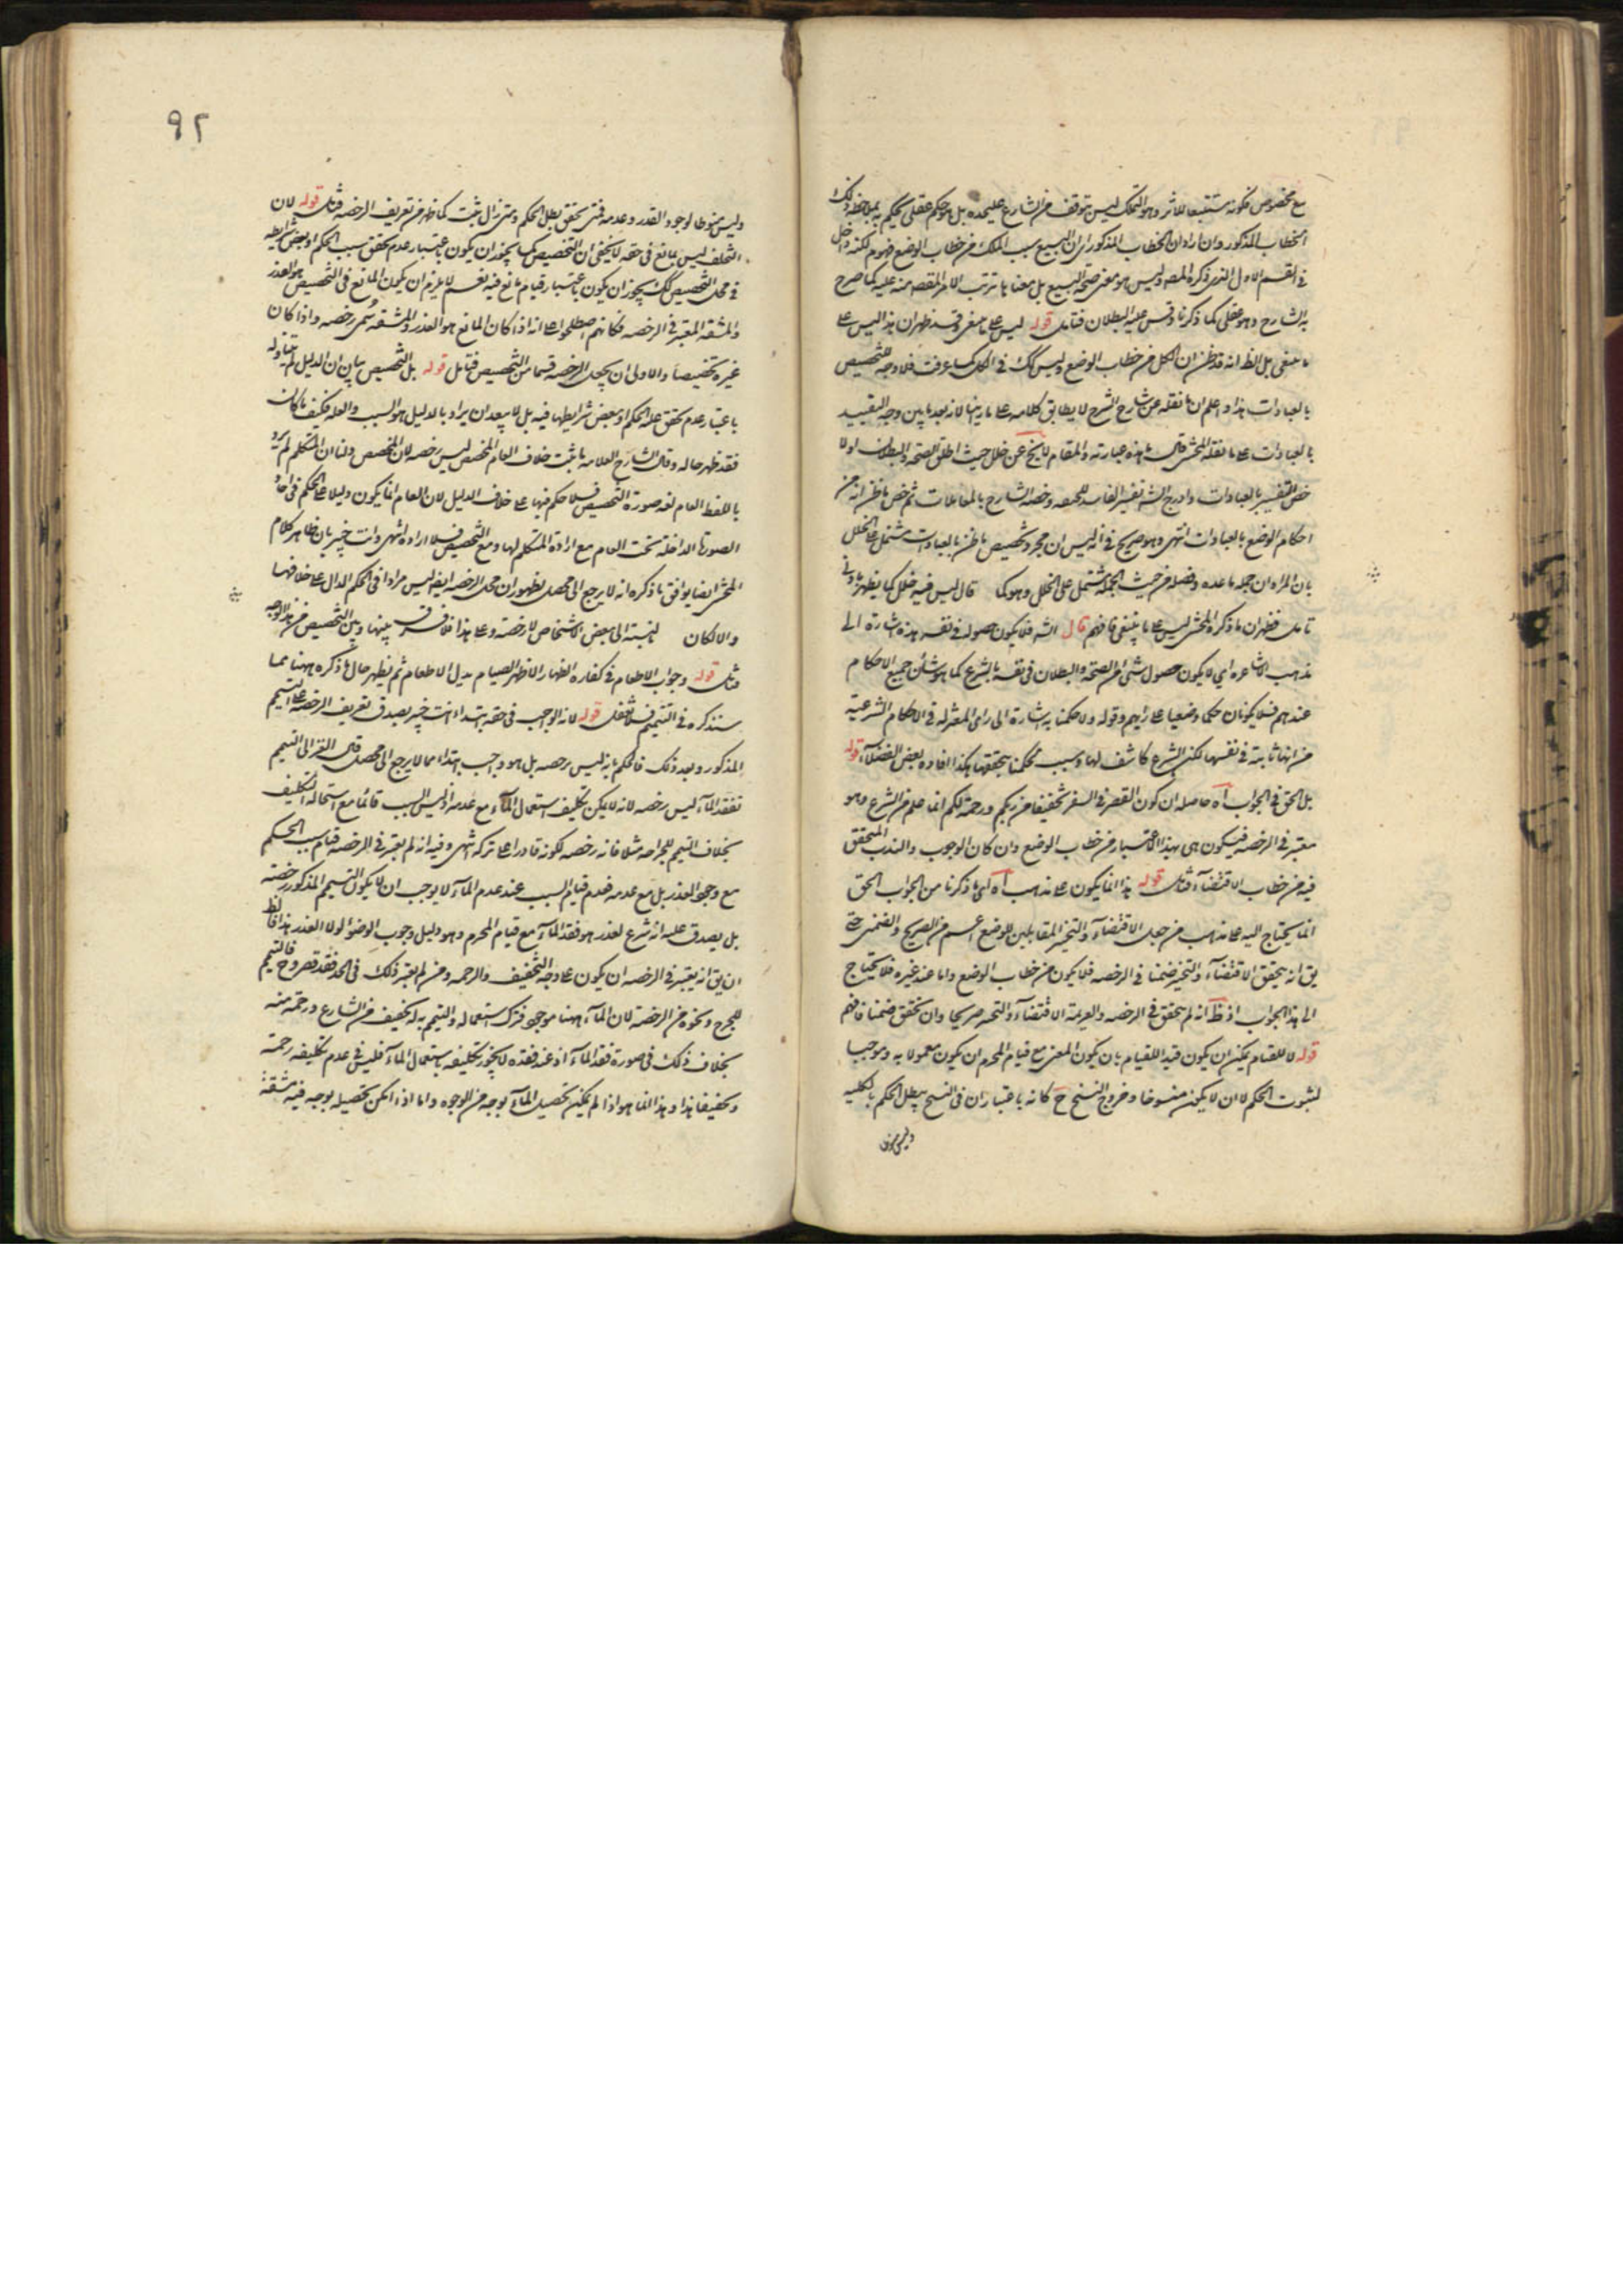 مع مخصوص فكونه مستتبعا للاثر وهو التملك ليس بتوقف من الشارع عليحده بل هو حكم عقلى يحكم به بملاحظة ذلك
الخطاب المذكور وان اراد ان الخطاب المذكور اى ان البيع سبب الملك من خطاب الوضع فهو م لكنه داخل
فى القسم الاول الذى ذكره المصه وليس هو معنى صحة البيع بل معناها ترتب الاثر المقصه منه عليه كما صرح
به الشارح وهو عقلى كما ذكرنا وقس عليه البطلان فتامل قوله ليس على ما ينبغى وقد ظهر ان هذا ليس على
ما ينبغى بل الظ انه قد ظن ان الكل من خطاب الوضع وليس كك فى الكل كما عرفت فلا وجه للتخصيص
بالعبادات هذا واعلم ان ما نقله عن شارح الشرح لا يطابق كلامه على ما راينا لانه بعد ما بين وجه التقييد
بالعبادات على ما نقله المحشى قال ما هذه عبارته والمقام لا يخ عن خلل حيث اطلق الصحة والبطلان اولا
خص التفسير بالعبادات وادرج الشه تفسير الفاسد للحنفيه وخصه الشارح بالمعاملات ثم خص ما ظن انه من
احكام الوضع بالعبادات انتهى وهو صريح فى انه ليس ان مجرد تخصيص ما ظن بالعبادات مشتمل على الخلل
بان المراد ان جمله ما عده وفصله من حيث الجمله مشتمل على الخلل وهو كما قال ليس فيه خلل كما يظهر بادنى
تامل فظهر ان ما ذكره المحشى ليس على ما ينبغى فافهم قال الشه فلا يكون حصوله فى نفسه هذه اشارة الى
مذهب الاشاعره اى لا يكون حصول شئ من الصحة والبطلان فى نفسه بالشرع كما هو شان جميع الاحكام
عندهم فلا يكونان حكما وضعيا على رايهم وقوله ولا حكمنا به اشارة الى راى المعتزله فى الاحكام الشرعية
من انها ثابتة فى نفسها لكن الشرع كاشف لها وسبب لحكمنا بتحققها هكذا افاده بعض الفضلاء قوله
بل الحق فى الجواب آه حاصله ان كون القصر فى السفر تخفيفا من ربكم ورحمة لكم انما علم من الشرع وهو
معتبر فى الرخصه فيكون هى بهذا الاعتبار من خطاب الوضع وان كان الوجوب والندب المتحقق
فيه من خطاب الاقتضاء فتامل قوله هذا انما يكون على مذهب آه اى ما ذكرنا من الجواب الحق
انما يحتاج اليه على مذهب من جعل الاقتضاء والتخيير المقابلين للوضع اعم من الصريح والضمنى حتى
يق انه يتحقق الاقتضاء والتخيير ضمنا فى الرخصه فلا يكون من خطاب الوضع واما عند غيره فلا يحتاج
الى هذا الجواب اذ ظ انه لم يتحقق فى الرخصه والعزيمة الاقتضاء والتخيير صريحا وان تحقق ضمنا فافهم
قوله لا للقيام يمكن ان يكون قيدا للقيام بان يكون المعنى مع قيام المحرم ان يكون معمولا به وموجبا
لثبوت الحكم لا ان لا يكون منسوخا وخروج النسخ ح كانه باعتبار ان فى النسخ يبطل الحكم بالكليه
وليس منوطا
٩٢
وليس منوطا لوجود العذر وعدمه فمتى تحقق بطل الحكم ومتى زال ثبت كما ظهر من تعريف الرخصه فتامل قوله لان
التخلف ليس لمانع فى حقه لا يخفى ان التخصيص كما يجوز ان يكون باعتبار عدم تحقق سبب الحكم او بعض شرايطه
فى محل التخصيص كك يجوز ان يكون باعتبار قيام مانع فيه نعم لا يلزم ان يكون المانع فى التخصيص هو العذر
والمشقه المعتبر فى الرخصه فكانهم اصطلحوا على انه اذا كان المانع هو العذر والمشقه سمى رخصه واذا كان
غيره تخصيصا والاولى ان يجعل الرخصه قسما من التخصيص فتامل قوله بل التخصيص بيان ان الدليل لم يتناوله
باعتبار عدم تحقق علة الحكم او بعض شرايطها فيه بل لا يبعد ان يراد بالدليل هو السبب والعله فكيف ما كان
فقد ظهر حاله وقال الشارح العلامه ما ثبت خلاف العام المخصص ليس رخصه لان المخصص ولنا ان المتكلم لم يرد
باللفظ العام لغه صورة التخصيص فلا حكم فيها على خلاف الدليل لان العام انما يكون دليلا على الحكم فى احاد
الصورتها الداخلة تحت العام مع ارادة المتكلم لها ومع التخصيص فلا اراده انتهى وانت خبير بان ظاهر كلام
المحشى ايضا يوافق ما ذكره انه لا يرجع الى محصل لظهور ان محل الرخصه ايضا ليس مرادا فى الحكم الدال على خلافها
والا لكان بالنسبة الى بعض الاشخاص لا رخصة وعلى هذا فلا فرق بينها وبين التخصيص من هذا الوجه
فتامل قوله وجوب الاطعام فى كفاره الظهار الاظهر الصيام بدل الاطعام ثم يظهر حال ما ذكره ههنا مما
سنذكره فى التيمم فلا تغفل قوله لانه الواجب فى حقه ابتداء انت خبير بصدق تعريف الرخصه على التيمم
المذكور وبعد ذلك فالحكم بانه ليس برخصه بل هو واجب ابتداء مما لا يرجع الى محصل قال الغزالى التيمم
لفقد الماء ليس رخصه لانه لا يمكن تكليف استعمال الماء مع عدمه اذ ليس السبب قائما مع استحاله التكليف
بخلاف التيمم للجراحه مثلا فانه رخصه لكونه قادرا على تركه انتهى وفيه انه لم يعتبر فى الرخصه قيام سبب الحكم
مع وجود العذر بل مع عدمه فعدم قيام السبب عند عدم الماء لا يوجب ان لا يكون التيمم المذكور رخصة
بل يصدق عليه انه شرع لعذر هو فقد الماء مع قيام المحرم وهو دليل وجوب الوضوء لولا العذر هذا فالظ
ان يق انه يعتبر فى الرخصه ان يكون على وجه التخفيف والرحمه ومن لم يعتبر ذلك فى الحد فقد قصر وح فالتيمم
للجرح ونحوه من الرخصة لان الماء ههنا موجود فترك استعماله والتيمم بدله تخفيف من الشارع ورحمة منه
بخلاف ذلك فى صورة فقد الماء اذ عند فقده لا يجوز تكليفه باستعمال الماء فليس فى عدم تكليفه رحمة
وتخفيفا هذا وهذا انما هو اذا لم يمكن تحصيل الماء بوجه من الوجوه واما اذا امكن تحصيله بوجه فيه مشقة